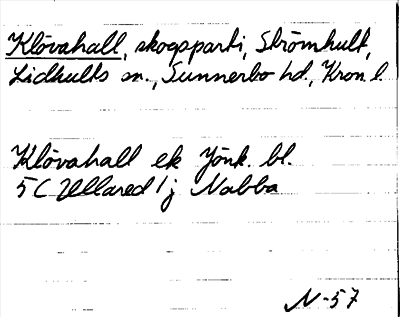 Klövahall, skogsparti, Strömhult,
Lidhults sn., Sunnerbo hd., Kron. l.
Klövahall ek Jönk. bl.
5C Ullared 1j Nabba
N-57